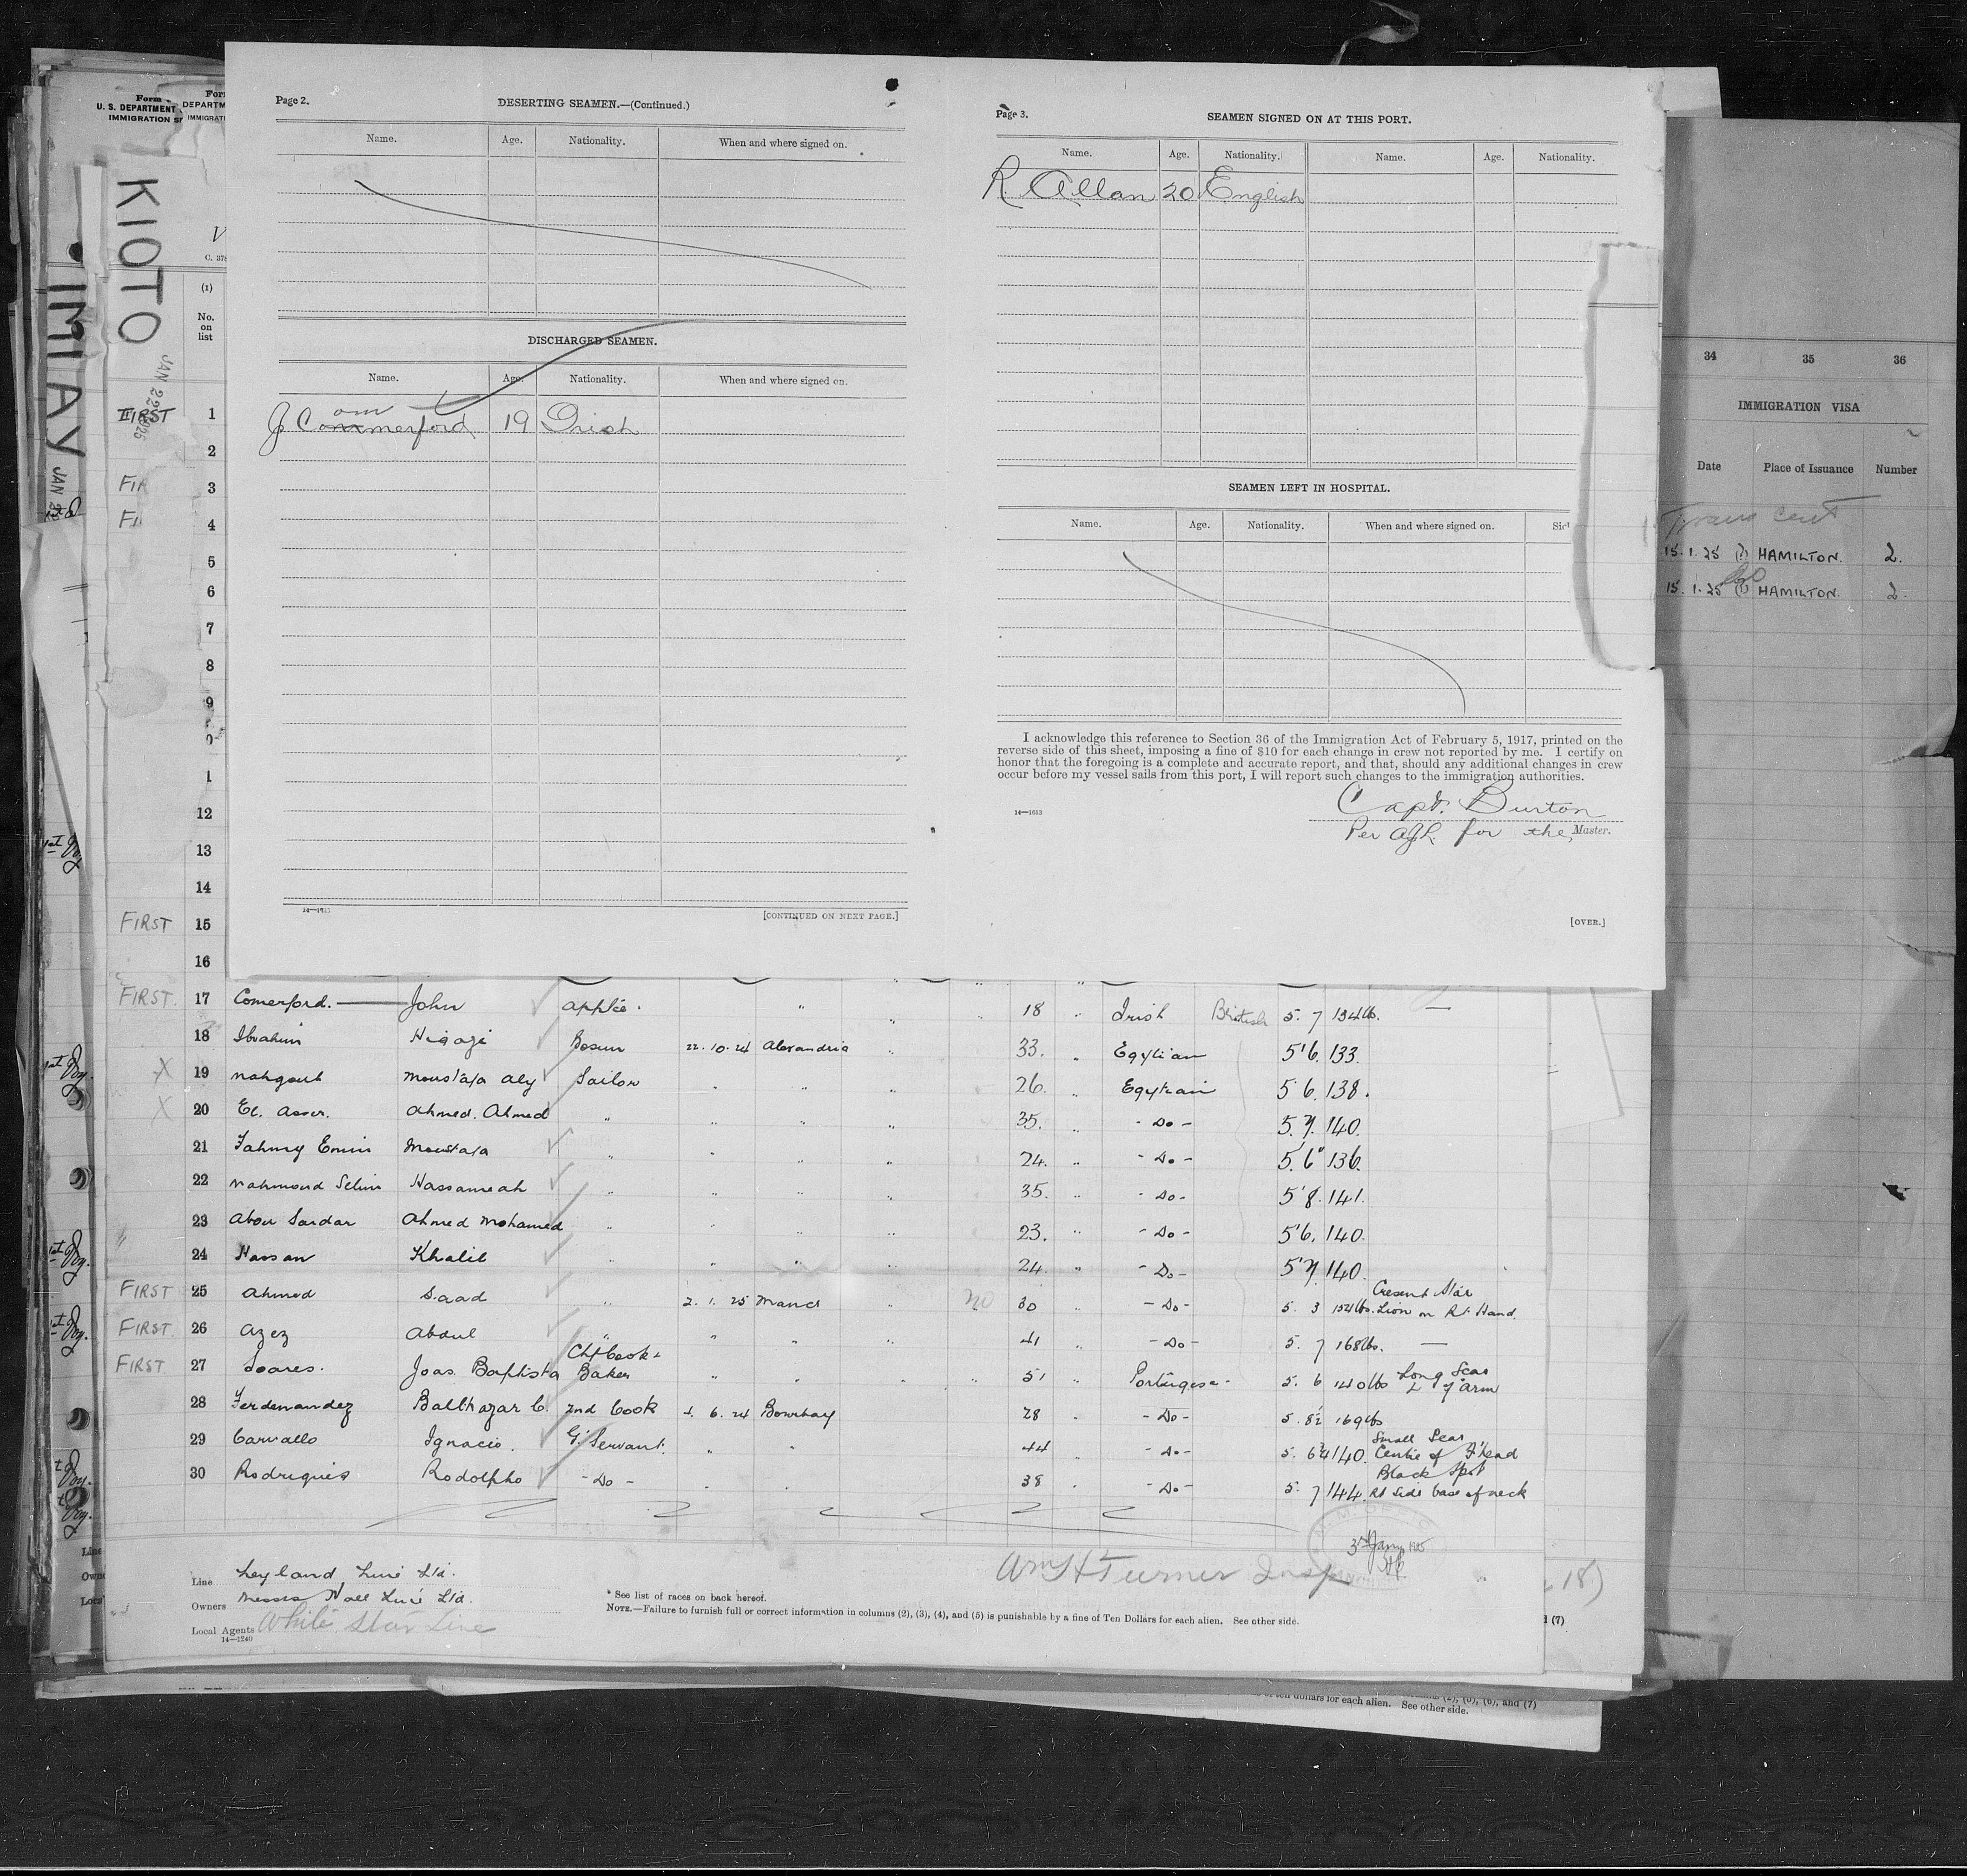 Page 2.
DESERTING SEAMEN.—(Continued.)
Name. Age. Nationality. When and where signed on.
DISCHARGED SEAMEN.
Name. Age. Nationality. When and where signed on.
om
J Commerford 19 Irish
14—1613
[CONTINUED ON NEXT PAGE.]
Page 3.
SEAMEN SIGNED ON AT THIS PORT.
Name. Age. Nationality. Name. Age. Nationality.
R. Allan 20 English
SEAMEN LEFT IN HOSPITAL.
Name. Age. Nationality. When and where signed on.
I acknowledge this reference to Section 36 of the Immigration Act of February 5, 1917, printed on the
reverse side of this sheet, imposing a fine of $10 for each change in crew not reported by me. I certify on
honor that the foregoing is a complete and accurate report, and that, should any additional changes in crew
occur before my vessel sails from this port, I will report such changes to the immigration authorities.
Capt. Burton
14—1613
Per for the Master.
[OVER.]
Form
U. S. DEPARTMENT
DEPARTM
IMMIGRATI
KIOTO
JAN 22 1925
IMLAY
JAN
C. 378
(1)
No.
on
list
FIRST 1
2
3
4
5
6
7
8
9
12
13
14
FIRST 15
16
FIRST. 17 Comerford. John Apptce. " " 18 " Irish British 5. 7 134lb. —
18 Ibrahim Higazi Bosun 22.10.24 Alexandria " 33. " Egytian 5'6. 133.
X 19 Mahgoub Moustafa Aly Sailor " " " 26. " Egytrain 5 6. 138.
X 20 El. Asser. Ahmed. Ahmed " " " 35. " - Do - 5.7. 140.
21 Fahmy Emin Moustafa " " " " 24. " - Do - 5'.6" 136.
22 Mahmoud Selim Hassaneah " " " " 35. " - Do - 5'8. 141.
23 Abou Sardar Ahmed Mohamed " " " " 23. " - Do - 5'6. 140.
24 Hassan Khalil " " " " 24. " - Do - 5'7. 140.
FIRST 25 Ahmed Saad " 2. 1. 25 Manch " no 30 - Do - 5. 3 154lbs. Cresent Star
Lion on Rt. Hand.
FIRST. 26 Azez Abdul " " " " 41 " - Do - 5. 7 168lbs. —
FIRST 27 Soares. Joas. Baptista Ch/Cook & Baker " " " " 51 " Portugese - 5. 6 140lbs Long Scar
L f'arm
28 Ferdenandez Balthazar C. 2nd Cook 4. 6. 24 Bombay 28 " - Do - 5. 8½ 169lbs
29 Carvallo Ignacio. G. Servant. " " 44 " - Do - 5. 6¾ 140. Small Scar
Centre of F'head
30 Rodrigues Rodolpho - Do - " " 38 " - Do - 5. 7 144. Black Spot
Rt side base of neck
3rd Jany 1925
Wm H Turner Insp
Line Leyland Line Ltd.
Owners Messrs Hall Line Ltd.
Local Agents White Star Line
14—1240
* See list of races on back hereof.
NOTE.—Failure to furnish full or correct information in columns (2), (3), (4), and (5) is punishable by a fine of Ten Dollars for each alien. See other side.
18)
(7)
of ten dollars for each alien. See other side.
(5), (6), and (7)
34 35 36
IMMIGRATION VISA
Date Place of Issuance Number
15.1.25 HAMILTON. 2.
15.1.25 HAMILTON. 2.